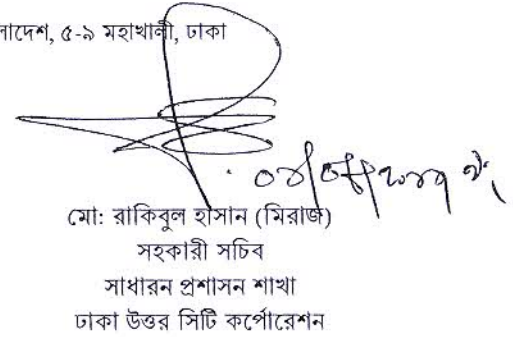 লাদেশ, ৫-৯ মহাখালী, ঢাকা
মো: রাকিবুল হাসান (মিরাজ)
সহকারী সচিব
সাধারন প্রশাসন শাখা
ঢাকা উত্তর সিটি কর্পোরেশন